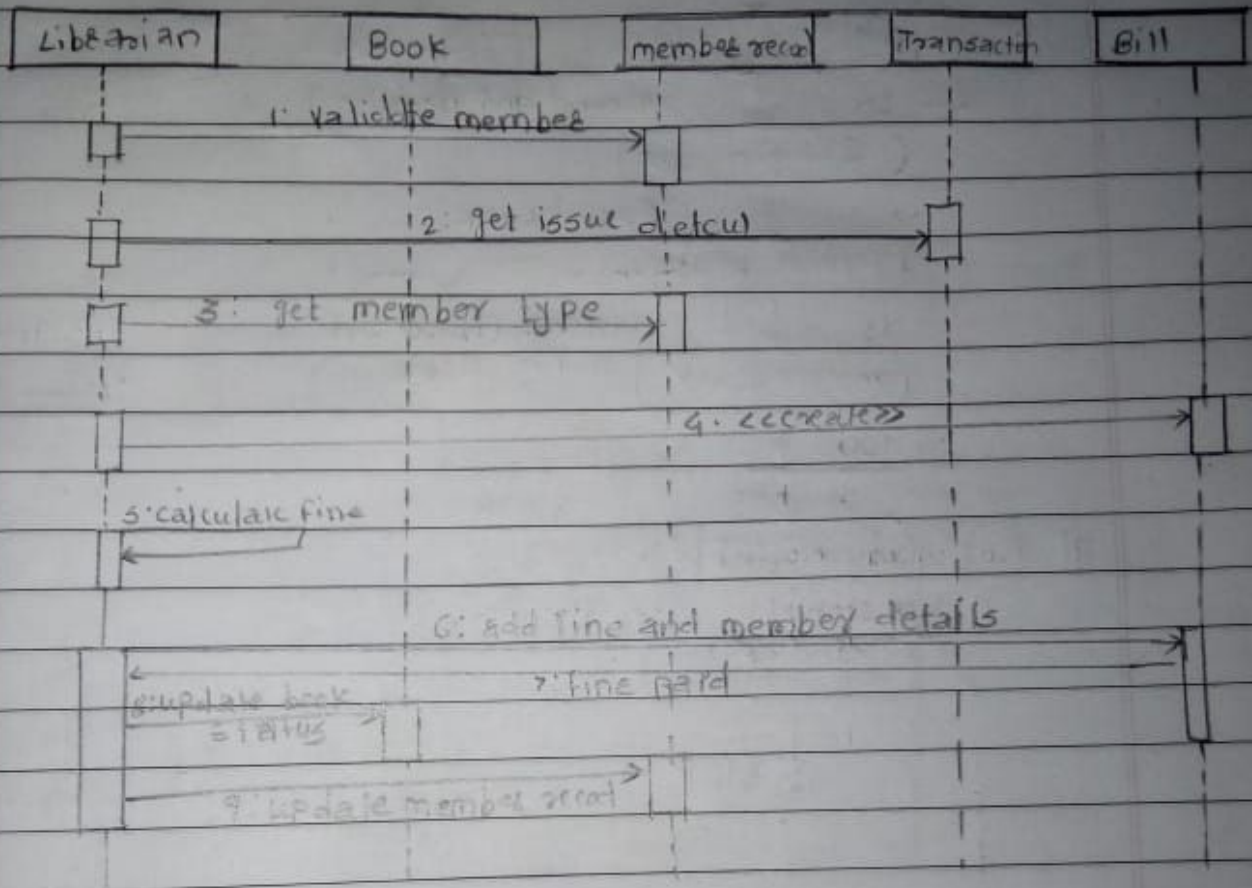 Librarian
Book
member recod
Transaction
Bill
1: validate member
2: get issue detail
3: get member type
4. <<create>>
5: calculate fine
6: add fine and member details
7: fine paid
8: update book
status
9: update member recod